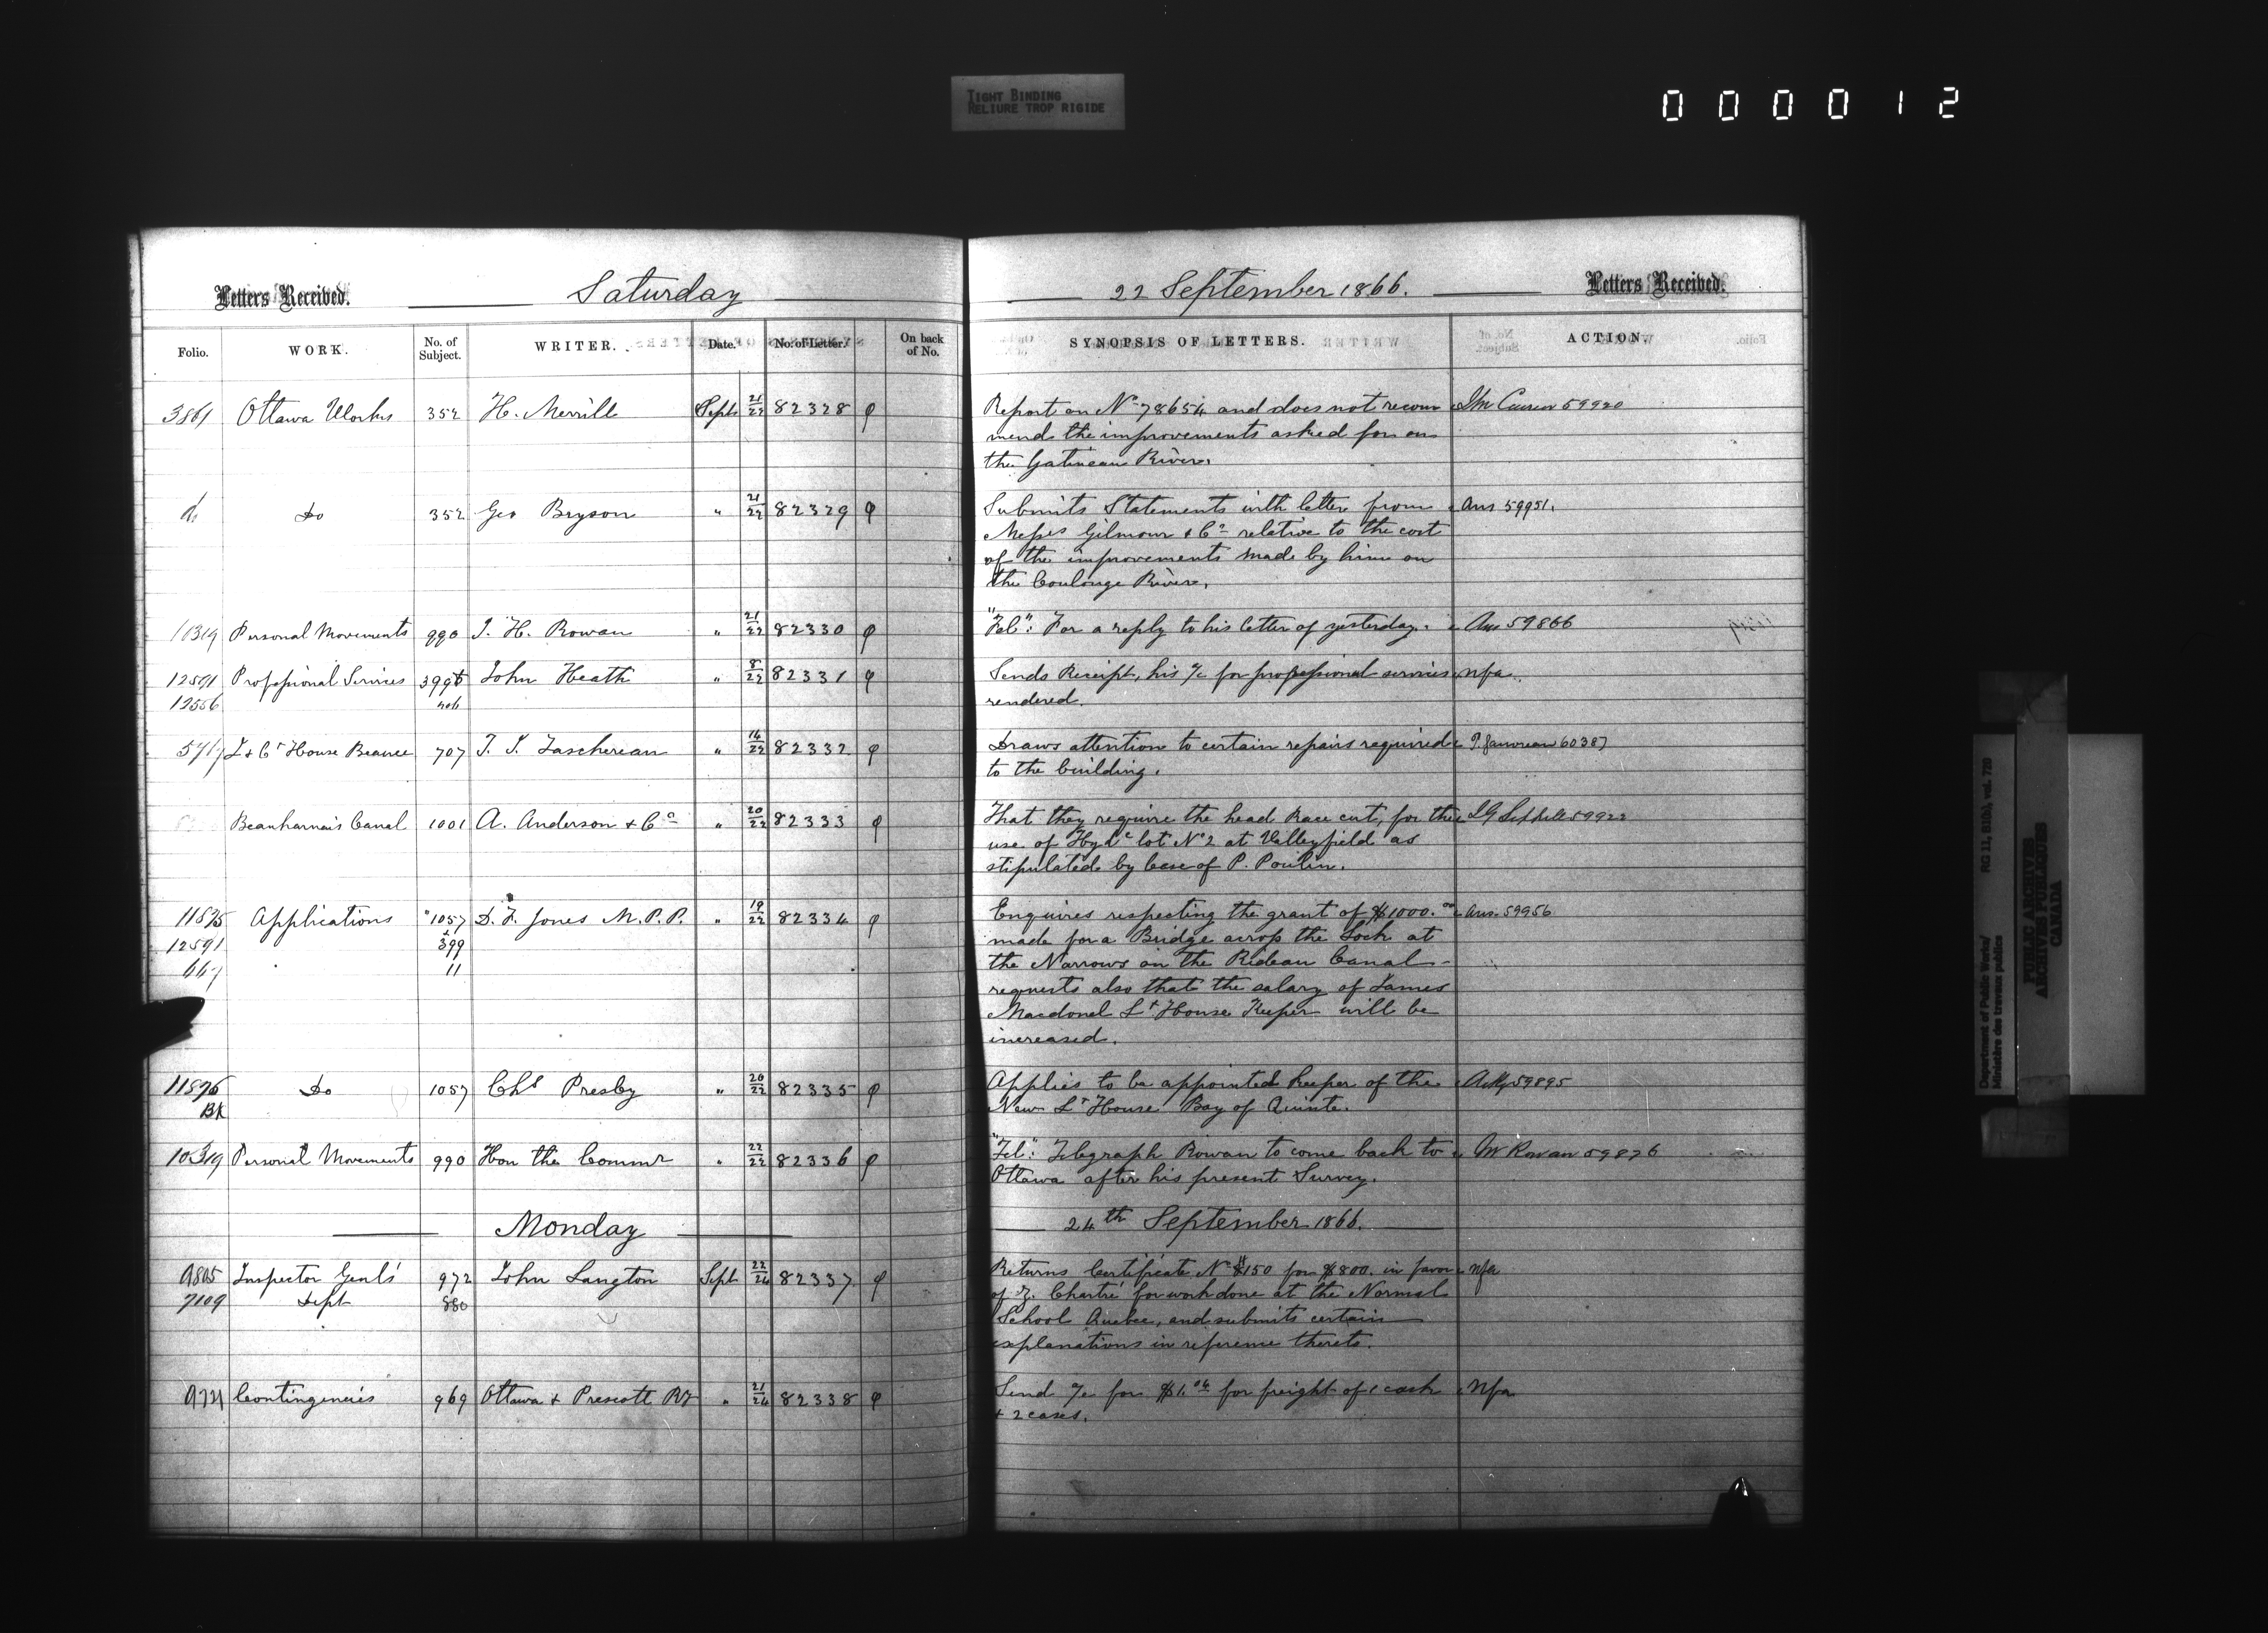 TIGHT BINDING
RELIURE TROP RIGIDE
000012
Letters Received. Saturday
Folio. WORK. No. of Subject. WRITER. Date. No. of Letter. On back of No.
3861 Ottawa Works 352 H. Merrill Sept 21/22 82328 φ
do Do 352 Geo Bryson " 21/22 82329 φ
10319 Personal Movements 990 J. H. Rowan " 21/22 82330 φ
12591 Professional Services 399 John Heath " 8/22 82331 φ
12556
L & Ct House Beauce 707 T. J. Taschereau " 14/22 82332 φ
Beauharnois Canal 1001 A. Anderson & Co " 20/22 82333 φ
11895 Applications 1057 D. F. Jones M.P.P. " 19/22 82334 φ
12591 399
667 11
11896 Do 1057 Chs Presby " 20/22 82335 φ
BK
10319 Personal Movements 990 Hon the Commr " 22/22 82336 φ
Monday
9805 Inspector Genl's 972 John Langton Sept 22/24 82337 φ
7109 Dept 880
9721 Contingencies 969 Ottawa & Prescott Ry " 21/24 82338 φ
22 September 1866. Letters Received.
SYNOPSIS OF LETTERS. ACTION.
Report on No 78654 and does not recom J.M. Currier 59920
mend the improvements asked for on
the Gatineau River.
Submits Statements with letter from Ans 59951.
Messrs Gilmour & Co relative to the cost
of the improvements made by him on
the Coulonge River.
"Tel": For a reply to his letter of yesterday. Ans 59866
Sends Receipt, his a/c for professional services nfa.
rendered.
Draws attention to certain repairs required 60387
to the building.
That they require the head Race cut, for the 59922
use of Hydc lot No 2 at Valleyfield as
stipulated by lease of P. Poulin.
Enquires respecting the grant of $1000.00 Ans. 59956
made for a Bridge across the Lock at
the Narrows on the Rideau Canal -
requests also that the salary of James
Macdonel Lt House Keeper will be
increased.
Applies to be appointed Keeper of the Ackg 59895
New Lt House Bay of Quinte.
"Tel": Telegraph Rowan to come back to Mr Rowan 59876
Ottawa after his present Survey.
24th September 1866.
Returns Certificate No 150 for $800. in favor nfa
of Z. Chartré for work done at the Normal
School Quebec, and submits certain
explanations in reference thereto.
Send a/c for $1.04 for freight of 1 cask nfa
& 2 cases.
Department of Public Works/ RG 11, B1(b), vol. 729
Ministère des travaux publics
PUBLIC ARCHIVES
ARCHIVES PUBLIQUES
CANADA